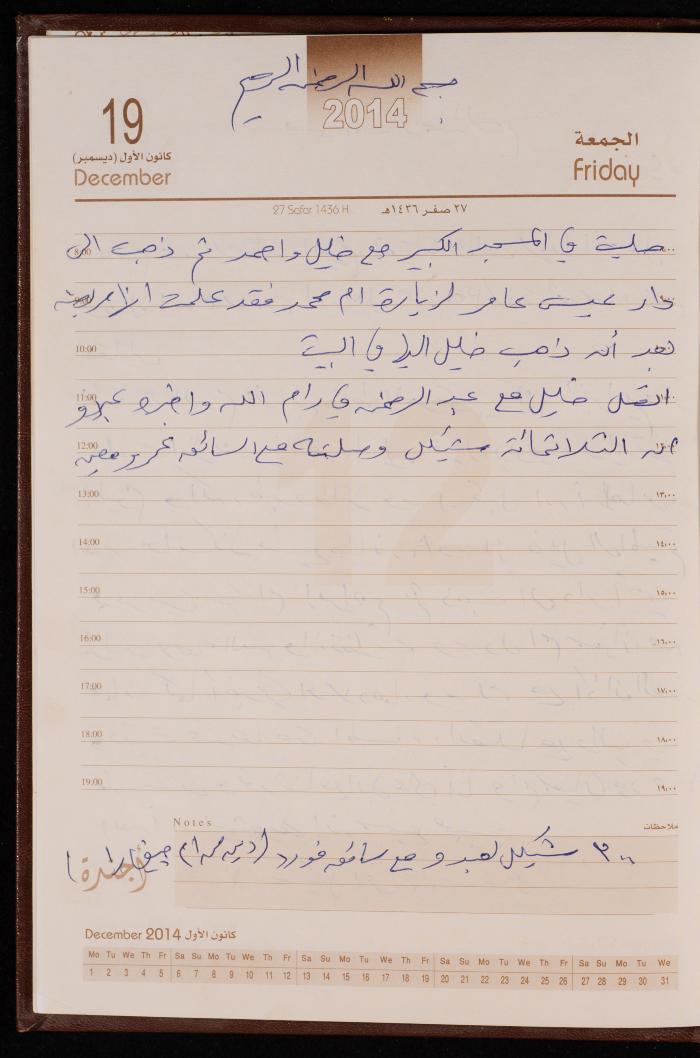 بسم الله الرحمن الرحيم
2014
19
كانون الأول (ديسمبر)
December
الجمعة
Friday
27 Safar 1436 H. ٢٧ صفر ١٤٣٦هـ
صليت في المسجد الكبير مع خليل واحمد ثم ذهبت الى
8:00
دار عيسى عامر لزيارة ام محمد فقد علمت
9:00
بعد أن ذهب خليل اليها في البيت
10:00
اتصل خليل مع عبد الرحمن في رام الله واخبره
11:00
ان الثلاثمائة شيكل وصلته مع السائق
12:00
13:00 ١٣:٠٠
14:00 ١٤:٠٠
15:00 ١٥:٠٠
16:00 ١٦:٠٠
17:00 ١٧:٠٠
18:00 ١٨:٠٠
19:00 ١٩:٠٠
12
Notes ملاحظات
٣٠٠ شيكل لعبدو مع سائق فورد
أجندة
December 2014 كانون الأول
Mo Tu We Th Fr Sa Su Mo Tu We Th Fr Sa Su Mo Tu We Th Fr Sa Su Mo Tu We Th Fr Sa Su Mo Tu We
1 2 3 4 5 6 7 8 9 10 11 12 13 14 15 16 17 18 19 20 21 22 23 24 25 26 27 28 29 30 31